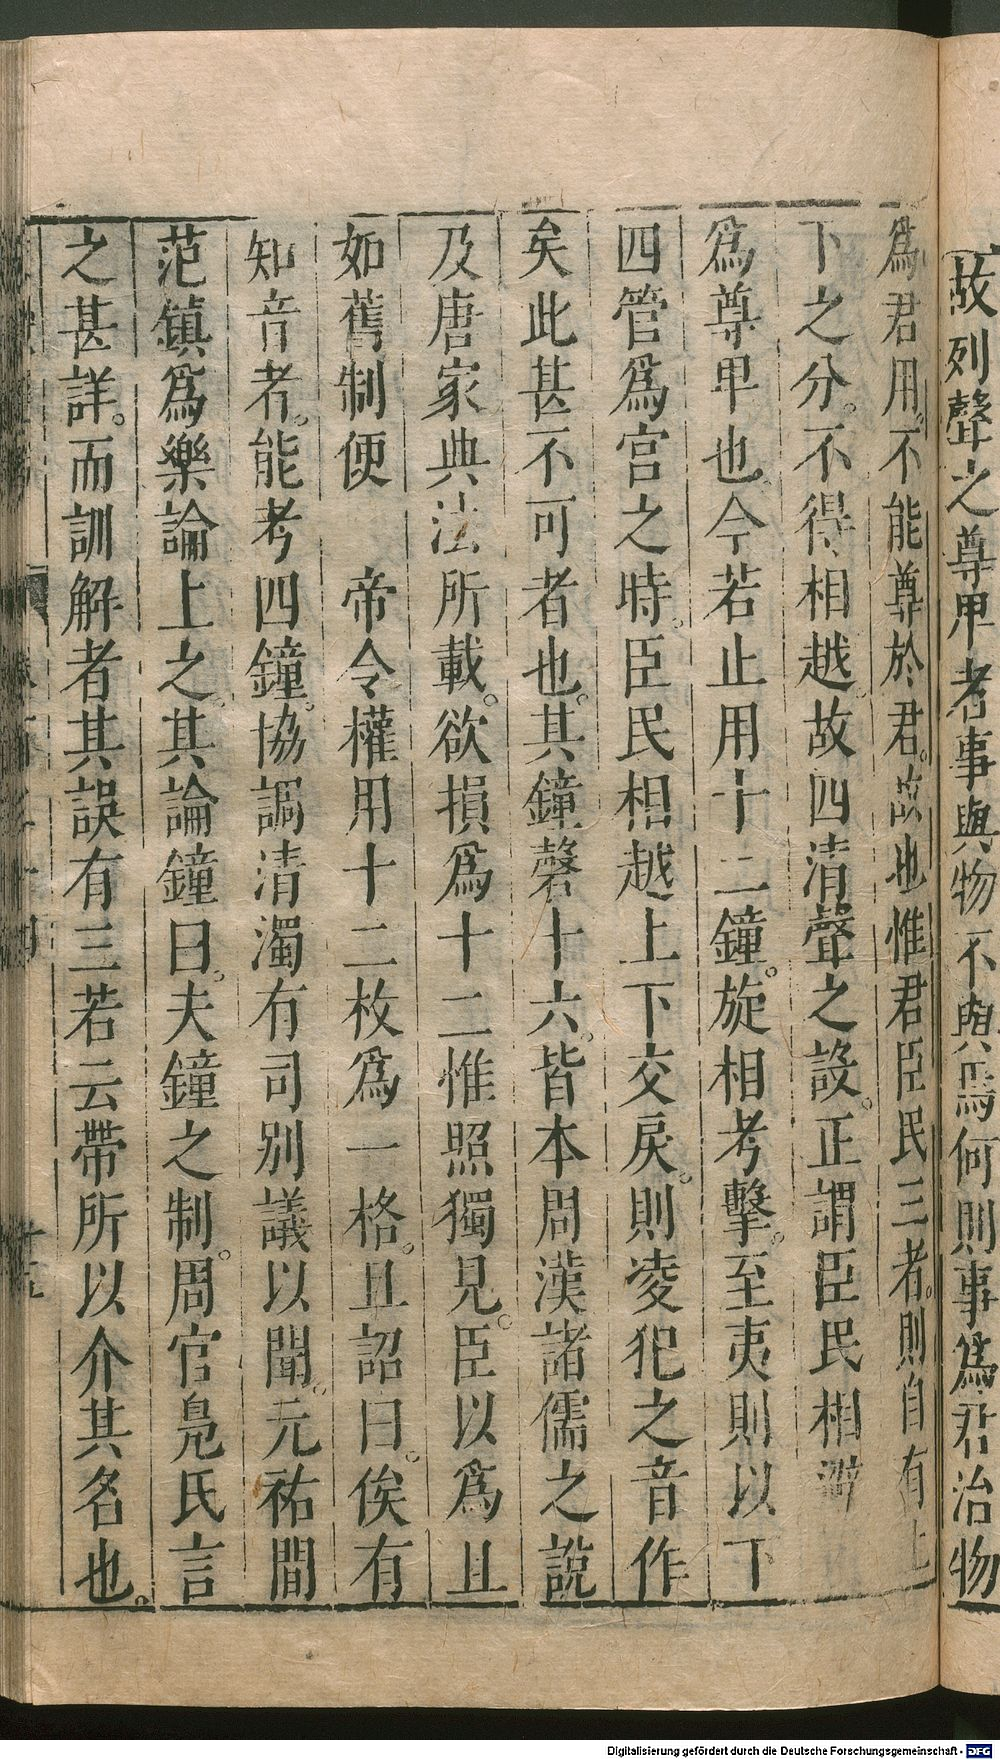 故列聲之尊𤰞者事與物不與焉何則事爲君治物
爲君用。不能尊於君。故也惟君臣民三者。則自有上
下之分。不得相越。故四清聲之設。正謂臣民相避
爲尊𤰞也。今若止用十二鐘。旋相考擊。至夷則以下
四管爲宫之時。臣民相越上下交戾。則凌犯之音作
矣此甚不可者也。其鐘磬十六。皆本周漢諸儒之說
及唐家典法所載。欲損爲十二惟照獨見。臣以爲且
如舊制便　帝令權用十二枚爲一格。且詔曰。俟有
知音者。能考四鐘。協調清濁有司别議以聞。元祐間
范鎮爲樂論上之。其論鐘曰。夫鐘之制。周官鳧氏言
之甚詳。而訓解者其誤有三若云帶所以介其名也。
Digitalisierung gefördert durch die Deutsche Forschungsgemeinschaft - DFG